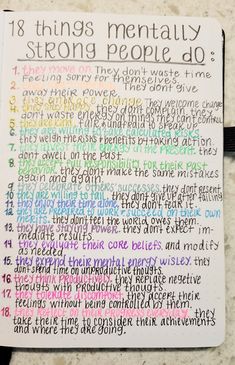 18 things mentally
strong people do:
1. they move on. They don't waste time
feeling sorry for themselves.
2. They don't give
away their power.
3. they embrace change. They welcome change
4. they don't complain. they
don't waste energy on things they can't control
5. talk and
6. they are willing to take calculated risks.
they weigh the risks & benefits by taking action.
7. in the present. they
don't dwell on the past.
8. they accept full responsibility for their past
behavior. they don't make the same mistakes
again and again.
9. they celebrate others' successes. they don't resent
10. they are willing to fail. they don't give up after failing
11. they enjoy their time alone. they don't fear it.
12. they are prepared to work & succeed on their own
merits. they don't feel the world owes them.
13. they have staying power. they don't expect im-
mediate results.
14. they evaluate their core beliefs. and modify
as needed.
15. they expend their mental energy wisley. they
don't spend time on unproductive thoughts.
16. they think productively. they replace negetive
thoughts with productive thoughts.
17. they tolerate discomfort. they accept their
feelings without being controlled by them.
18. they reflect on their progress everyday. they
take their time to consider their achievements
and where they are going.